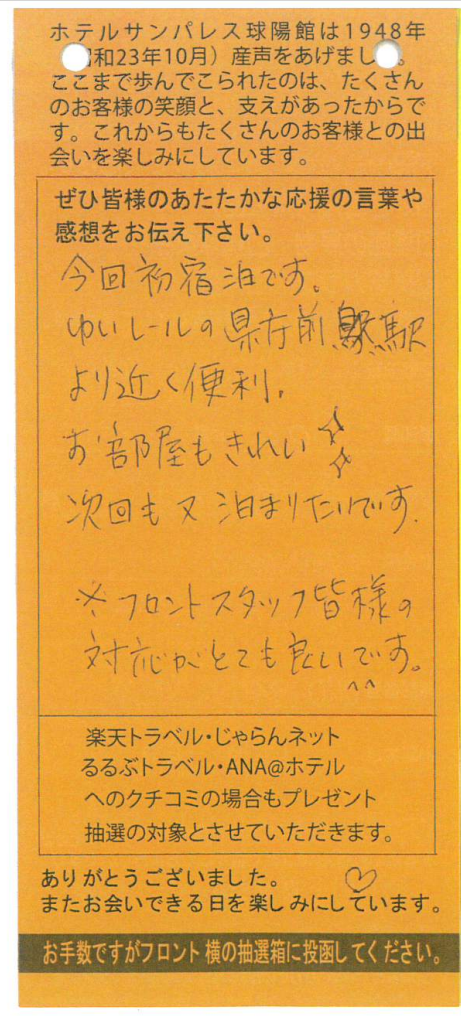 ホテルサンパレス球陽館は1948年
和23年10月）産声をあげまし。
ここまで歩んでこられたのは、たくさん
のお客様の笑顔と、支えがあったからで
す。これからもたくさんのお客様との出
会いを楽しみにしています。
ぜひ皆様のあたたかな応援の言葉や
感想をお伝え下さい。
今回初宿泊です。
ゆいレールの県庁前駅
より近く便利。
お部屋もきれい
次回も又泊まりたいです.
※フロントスタッフ皆様の
対応がとても良いです。
^^
楽天トラベル・じゃらんネット
るるぶトラベル・ANA@ホテル
へのクチコミの場合もプレゼント
抽選の対象とさせていただきます。
ありがとうございました。♡
またお会いできる日を楽しみにしています。
お手数ですがフロント横の抽選箱に投函してください。